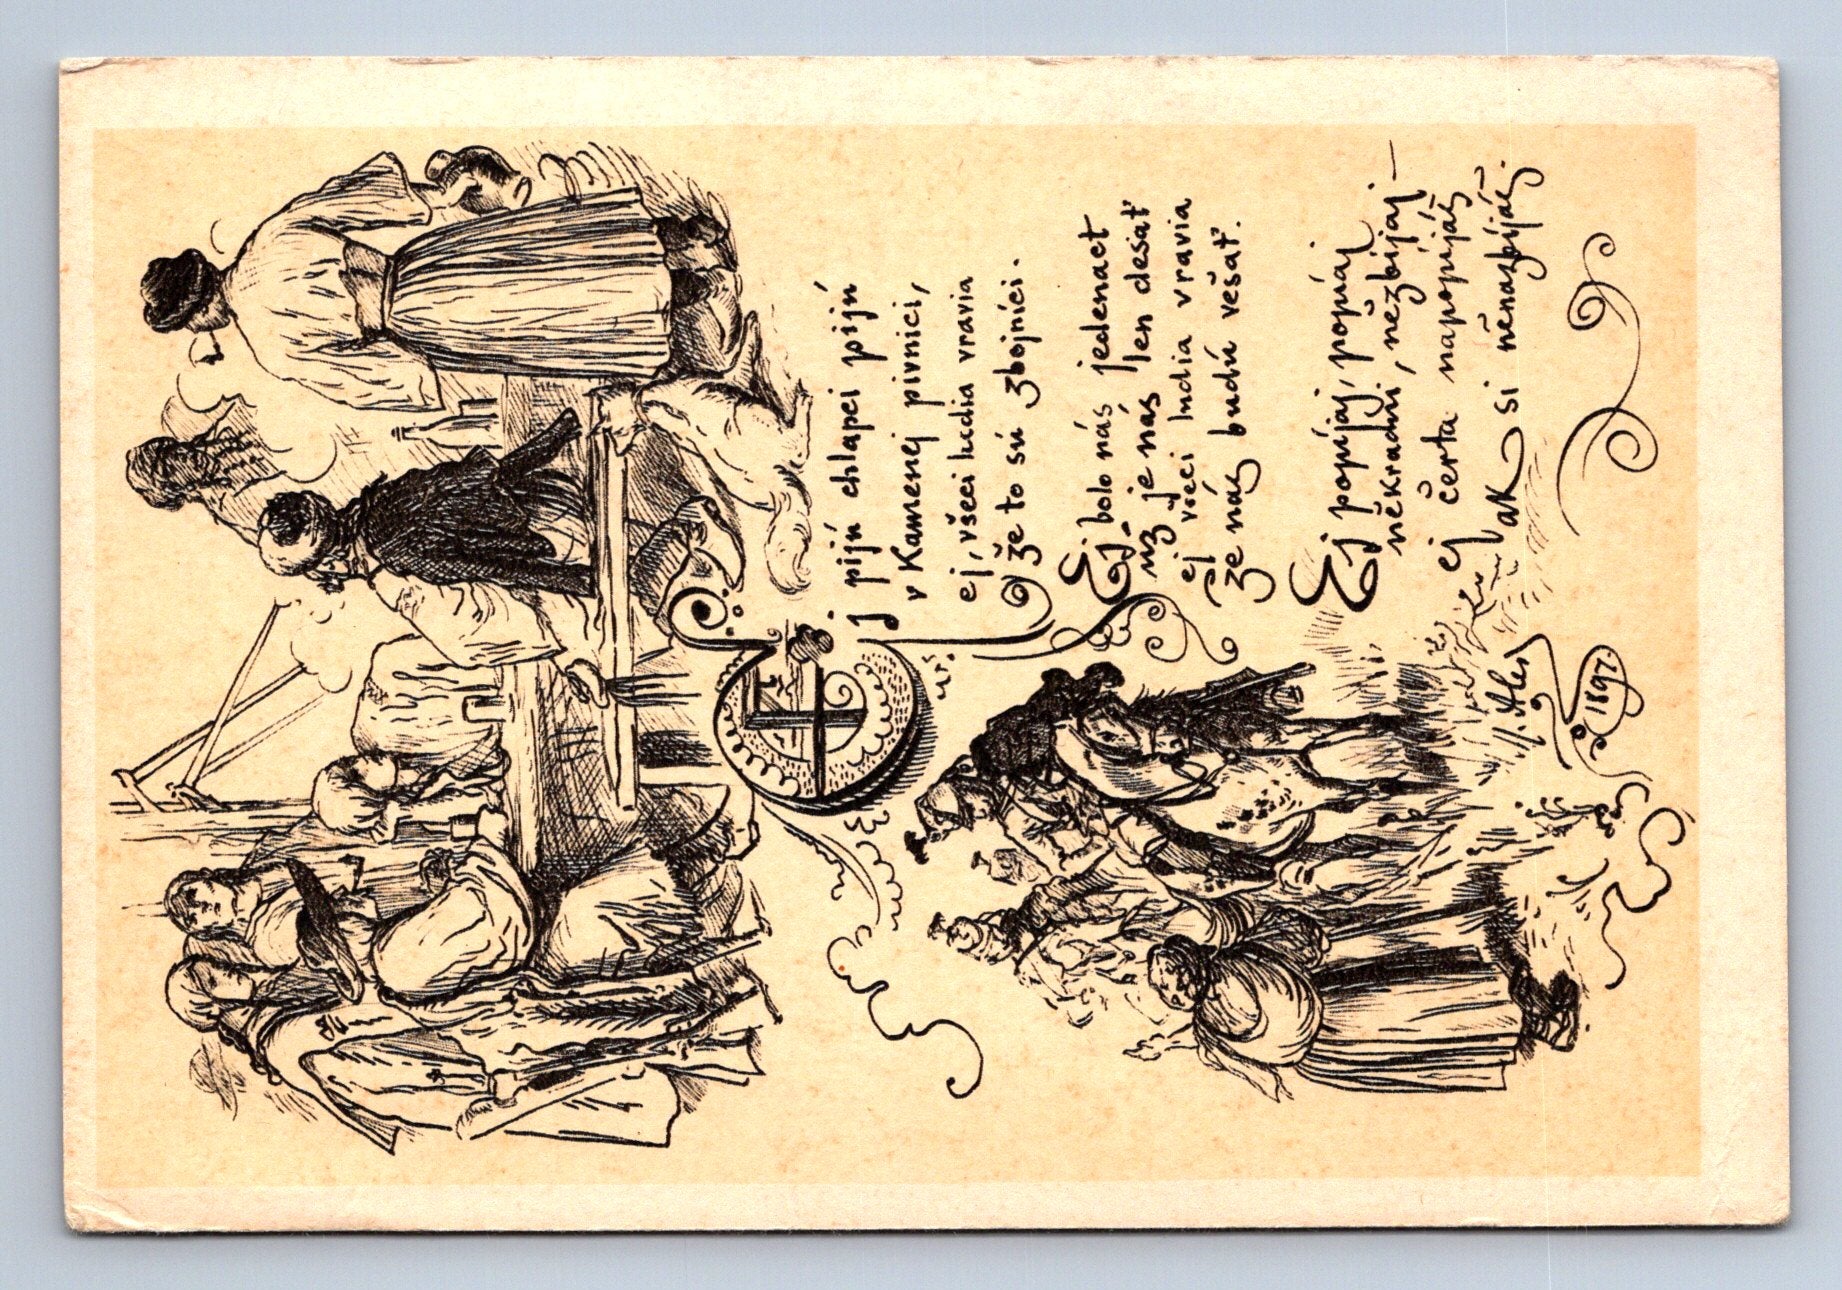 Ej pijú chlapci pijú
v Kamenej pivnici,
ej, všeci ludia vravia
že to sú zbojníci.
Ej bolo nás jedenact
už je nás len desať
ej všeci ludia vravia
že nás budú vešať.
Ej popíjaj, popíjaj
někradni, nězbíjaj –
ej čerta napopijáš
ak si něnazbíjáš.
M. Aleš
1897.